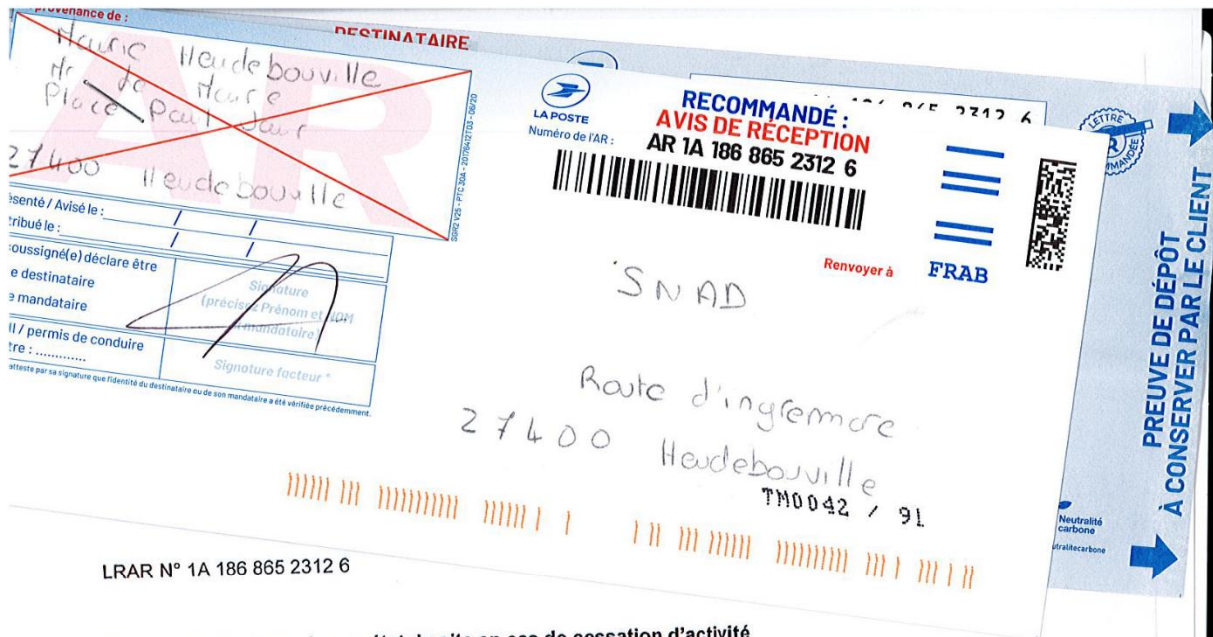 provenance de :
Mairie Heudebouville
Mr le Maire
Place Paul
27400 Heudebouville
DESTINATAIRE
SGR2 V25 - PTC 30A - 20176412T03 - 06/20
ésenté / Avisé le : / /
tribué le : / /
oussigné(e) déclare être
e destinataire
e mandataire
II / permis de conduire
tre : .............
Signature
(précisez Prénom et NOM
mandataire
Signature facteur *
atteste par sa signature que l'identité du destinataire ou de son mandataire a été vérifiée précédemment.
LA POSTE
RECOMMANDÉ :
AVIS DE RÉCEPTION
Numéro de l'AR :
AR 1A 186 865 2312 6
Renvoyer à
FRAB
SNAD
Route d'ingremare
27400 Heudebouville
TM0042 / 91
LETTRE
R
PREUVE DE DÉPÔT
À CONSERVER PAR LE CLIENT
Neutralité
carbone
utralitecarbone
LRAR N° 1A 186 865 2312 6
site en cas de cessation d'activité